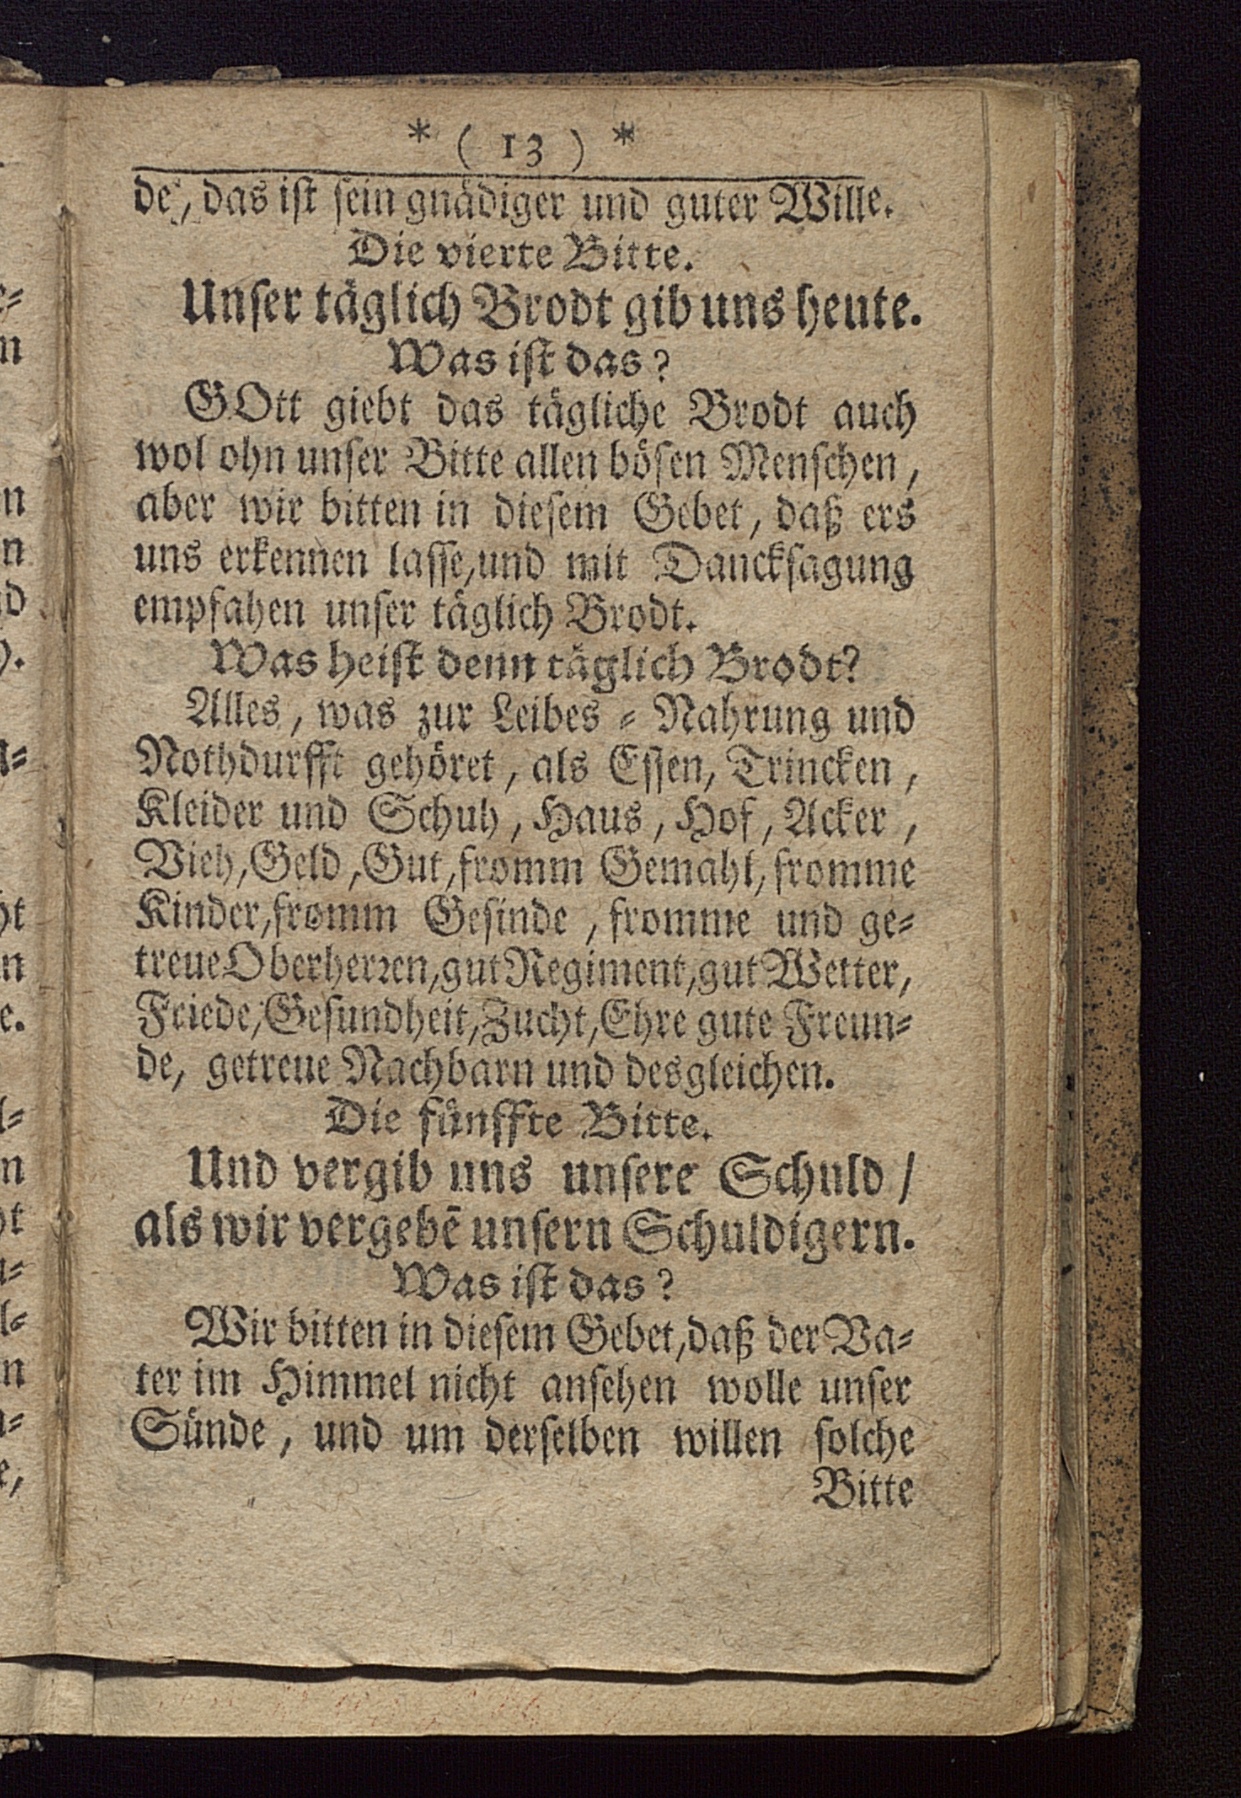 * ( 13 ) *
de, das ist sein gnädiger und guter Wille.
Die vierte Bitte.
Unser täglich Brodt gib uns heute.
Was ist das?
GOtt giebt das tägliche Brodt auch
wol ohn unser Bitte allen bösen Menschen,
aber wir bitten in diesem Gebet, daß ers
uns erkennen lasse, und mit Dancksagung
empfahen unser täglich Brodt.
Was heist denn täglich Brodt?
Alles, was zur Leibes-Nahrung und
Nothdurfft gehöret, als Essen, Trincken,
Kleider und Schuh, Haus, Hof, Acker,
Vieh, Geld, Gut, fromm Gemahl, fromme
Kinder, fromm Gesinde, fromme und ge-
treue Oberherren, gut Regiment, gut Wetter,
Friede, Gesundheit, Zucht, Ehre gute Freun-
de, getreue Nachbarn und desgleichen.
Die fünffte Bitte.
Und vergib uns unsere Schuld /
als wir vergebē unsern Schuldigern.
Was ist das?
Wir bitten in diesem Gebet, daß der Va-
ter im Himmel nicht ansehen wolle unser
Sünde, und um derselben willen solche
Bitte